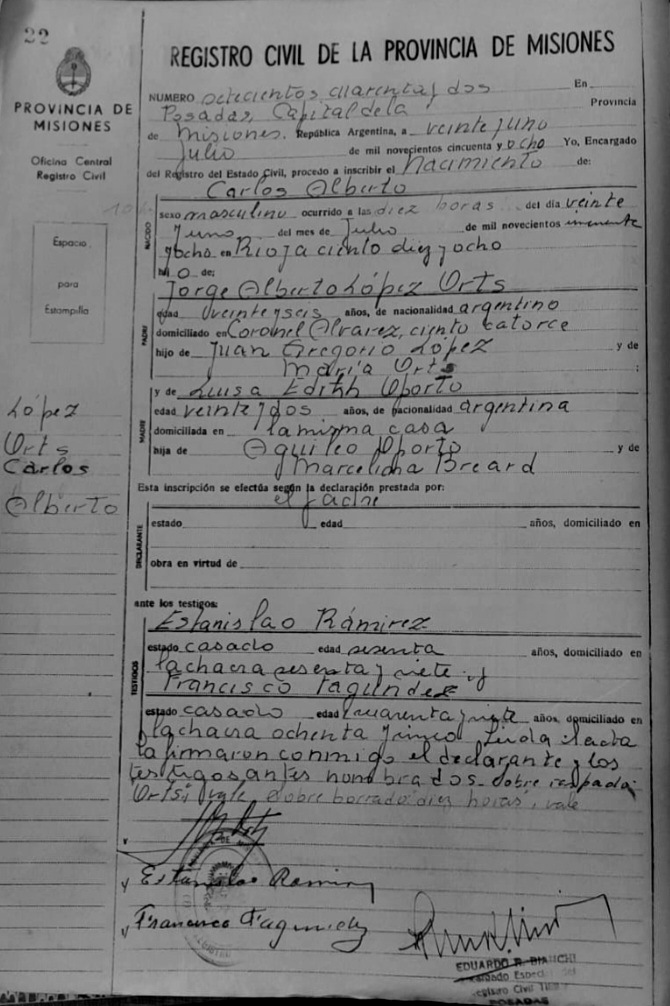 22
REGISTRO CIVIL DE LA PROVINCIA DE MISIONES
PROVINCIA DE
MISIONES
Oficina Central
Registro Civil
Espacio
para
Estampilla
López
Orts
Carlos
Alberto
NUMERO ochocientos cuarenta y dos En
Posadas, Capital de la Provincia
de Misiones. República Argentina, a veinte y uno
Julio de mil novecientos cincuenta y ocho Yo, Encargado
del Registro del Estado Civil, procedo a inscribir el nacimiento de:
Carlos Alberto
NACIDO
sexo masculino ocurrido a las diez horas del día veinte
y uno del mes de Julio de mil novecientos cincuenta
y ocho en Rioja ciento diez y ocho
hijo de:
Jorge Alberto López Orts
PADRE
edad veinte y seis años, de nacionalidad argentino
domiciliado en Coronel Alvarez, ciento catorce
hijo de Juan Gregorio López y de
María Orts ;
MADRE
y de Luisa Edith Oporto
edad veinte y dos años, de nacionalidad argentina
domiciliada en la misma casa
hija de Aquileo Oporto y de
Marcelina Breard
Esta inscripción se efectúa según la declaración prestada por:
el padre
DECLARANTE
estado edad años, domiciliado en
obra en virtud de
ante los testigos:
Estanislao Rámirez
TESTIGOS
estado casado edad sesenta años, domiciliado en
la chacra sesenta y siete y
Francisco Fagundez
estado casado edad cuarenta y siete años, domiciliado en
la chacra ochenta y uno Leida el acta
la firmaron conmigo el declarante y los
testigos antes nombrados. Sobre raspado:
Orts: vale, sobre borrado: diez horas: vale
Estanislao Ramirez
Francisco Fagundez
EDUARDO R. BIANCHI
Encargado Especial del
Registro Civil
POSADAS